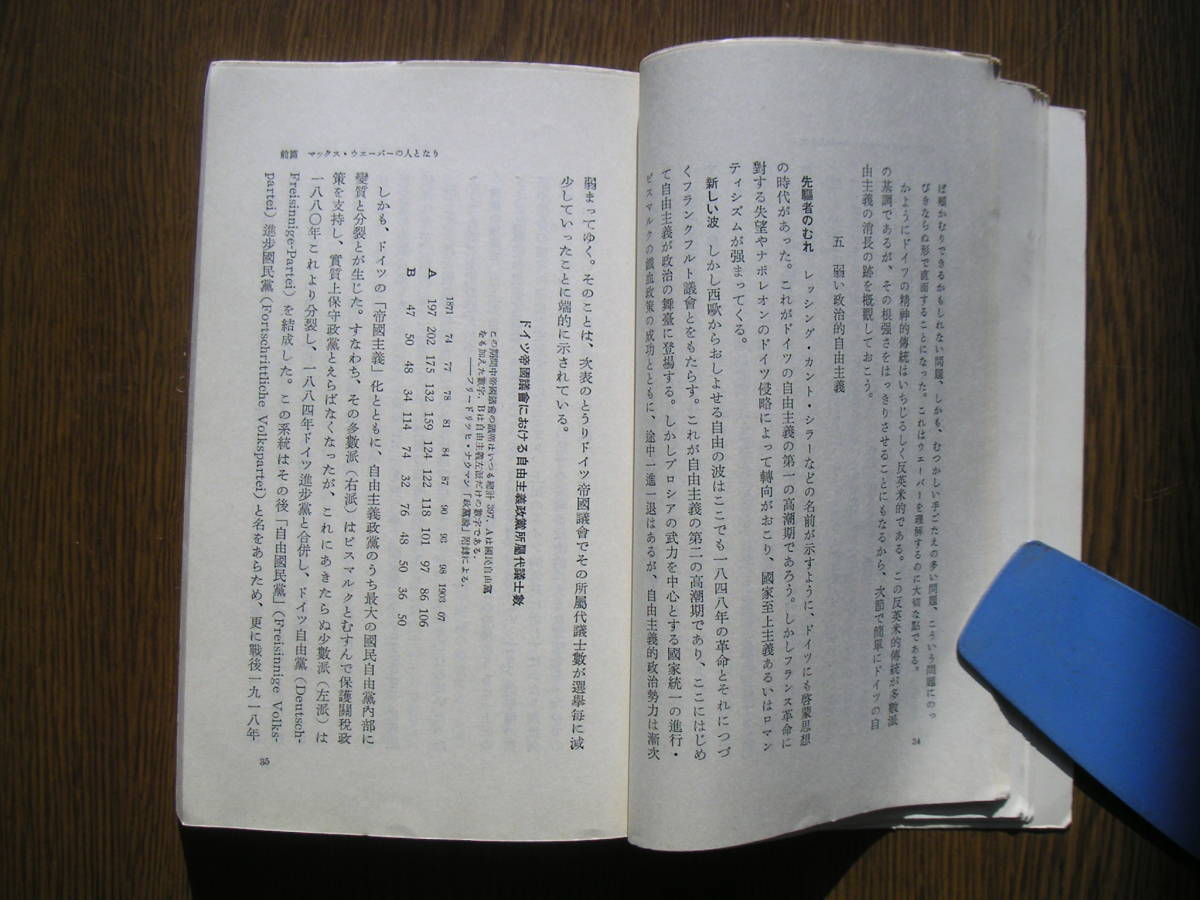 ば頰かむりできるかもしれない問題、しかも、むつかしい手ごたえの多い問題、こういう問題にのっ
ぴきならぬ形で直面することになった。これはウエーバーを理解するのに大切な點である。
かようにドイツの精神的傳統はいちじるしく反英米的である。この反英米的傳統が多數派
の基調であるが、その根强さをはっきりさせることにもなるから、次節で簡單にドイツの自
由主義の消長の跡を槪觀しておこう。
五 弱い政治的自由主義
先驅者のむれ レッシング・カント・シラーなどの名前が示すように、ドイツにも啓蒙思想
の時代があった。これがドイツの自由主義の第一の高潮期であろう。しかしフランス革命に
對する失望やナポレオンのドイツ侵略によって轉向がおこり、國家至上主義あるいはロマン
ティシズムが强まってくる。
新しい波 しかし西歐からおしよせる自由の波はここでも一八四八年の革命とそれにつづ
くフランクフルト議會とをもたらす。これが自由主義の第二の高潮期であり、ここにはじめ
て自由主義が政治の舞臺に登場する。しかしプロシアの武力を中心とする國家統一の進行・
ビスマルクの鐵血政策の成功とともに、途中一進一退はあるが、自由主義的政治勢力は漸次
34
弱まってゆく。そのことは、次表のとうりドイツ帝國議會でその所屬代議士數が選擧每に減
少していったことに端的に示されている。
ドイツ帝國議會における自由主義政黨所屬代議士數
この期間中帝國議會の議席はいつも總計 397、Aは國民自由黨
なども加えた數字、Bは自由主義左派だけの數字である。
——フリードリッヒ・ナウマン「政黨論」附錄による。
1871 74 77 78 81 84 87 90 93 98 1903 07
A 197 202 175 132 159 124 122 118 101 97 86 106
B 47 50 48 34 114 74 32 76 48 50 36 50
しかも、ドイツの「帝國主義」化とともに、自由主義政黨のうち最大の國民自由黨內部に
變質と分裂とが生じた。すなわち、その多數派（右派）はビスマルクとむすんで保護關稅政
策を支持し、實質上保守政黨とえらばなくなったが、これにあきたらぬ少數派（左派）は
一八八〇年これより分裂し、一八八四年ドイツ進步黨と合併し、ドイツ自由黨（Deutsch-
Freisinnige-Partei）を結成した。この系統はその後「自由國民黨」（Freisinnige Volks-
partei）進步國民黨（Fortschrittliche Volkspartei）と名をあらため、更に戰後一九一八年
前篇 マックス・ウエーバーの人となり
35